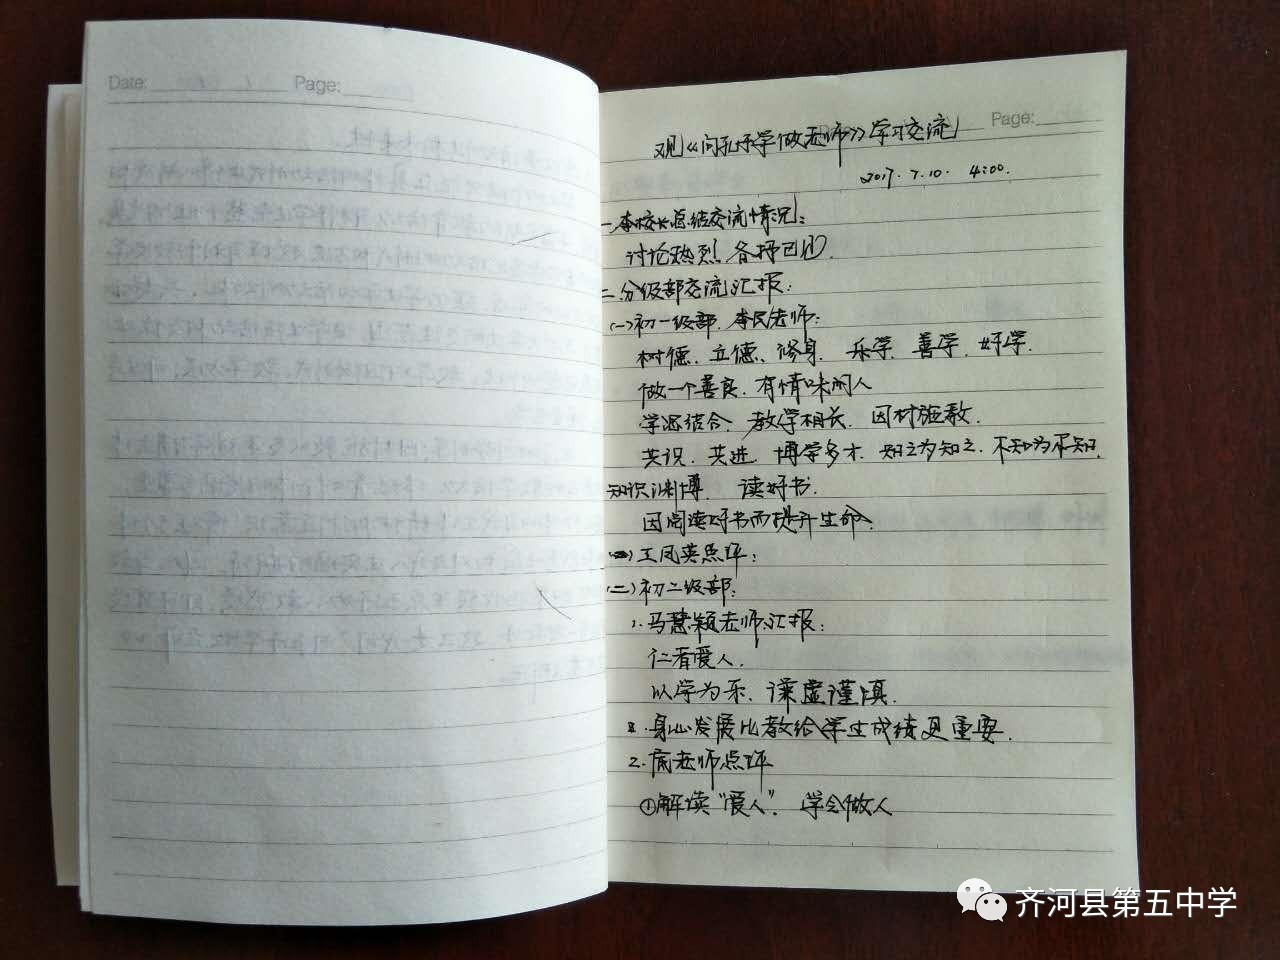 Date: Page:
Page:
观《向孔子学做老师》学习交流
2017.7.10. 4:00.
一.李校长总结交流情况:
讨论热烈 各抒己见
二.分级部交流汇报:
(一)初一级部. 李民老师:
树德. 立德、修身. 乐学. 善学. 好学.
做一个善良. 有情味的人
学思结合、教学相长. 因材施教.
共识. 共进. 博学多才. 知之为知之. 不知为不知.
知识渊博. 读好书.
因阅读好书而提升生命.
王凤英点评:
(二)初二级部:
1.马慧颖老师汇报:
仁者爱人.
以学为乐. 谦虚谨慎.
身心发展比教给学生成绩更重要.
2.底老师点评
①解读"爱人". 学会做人
齐河县第五中学